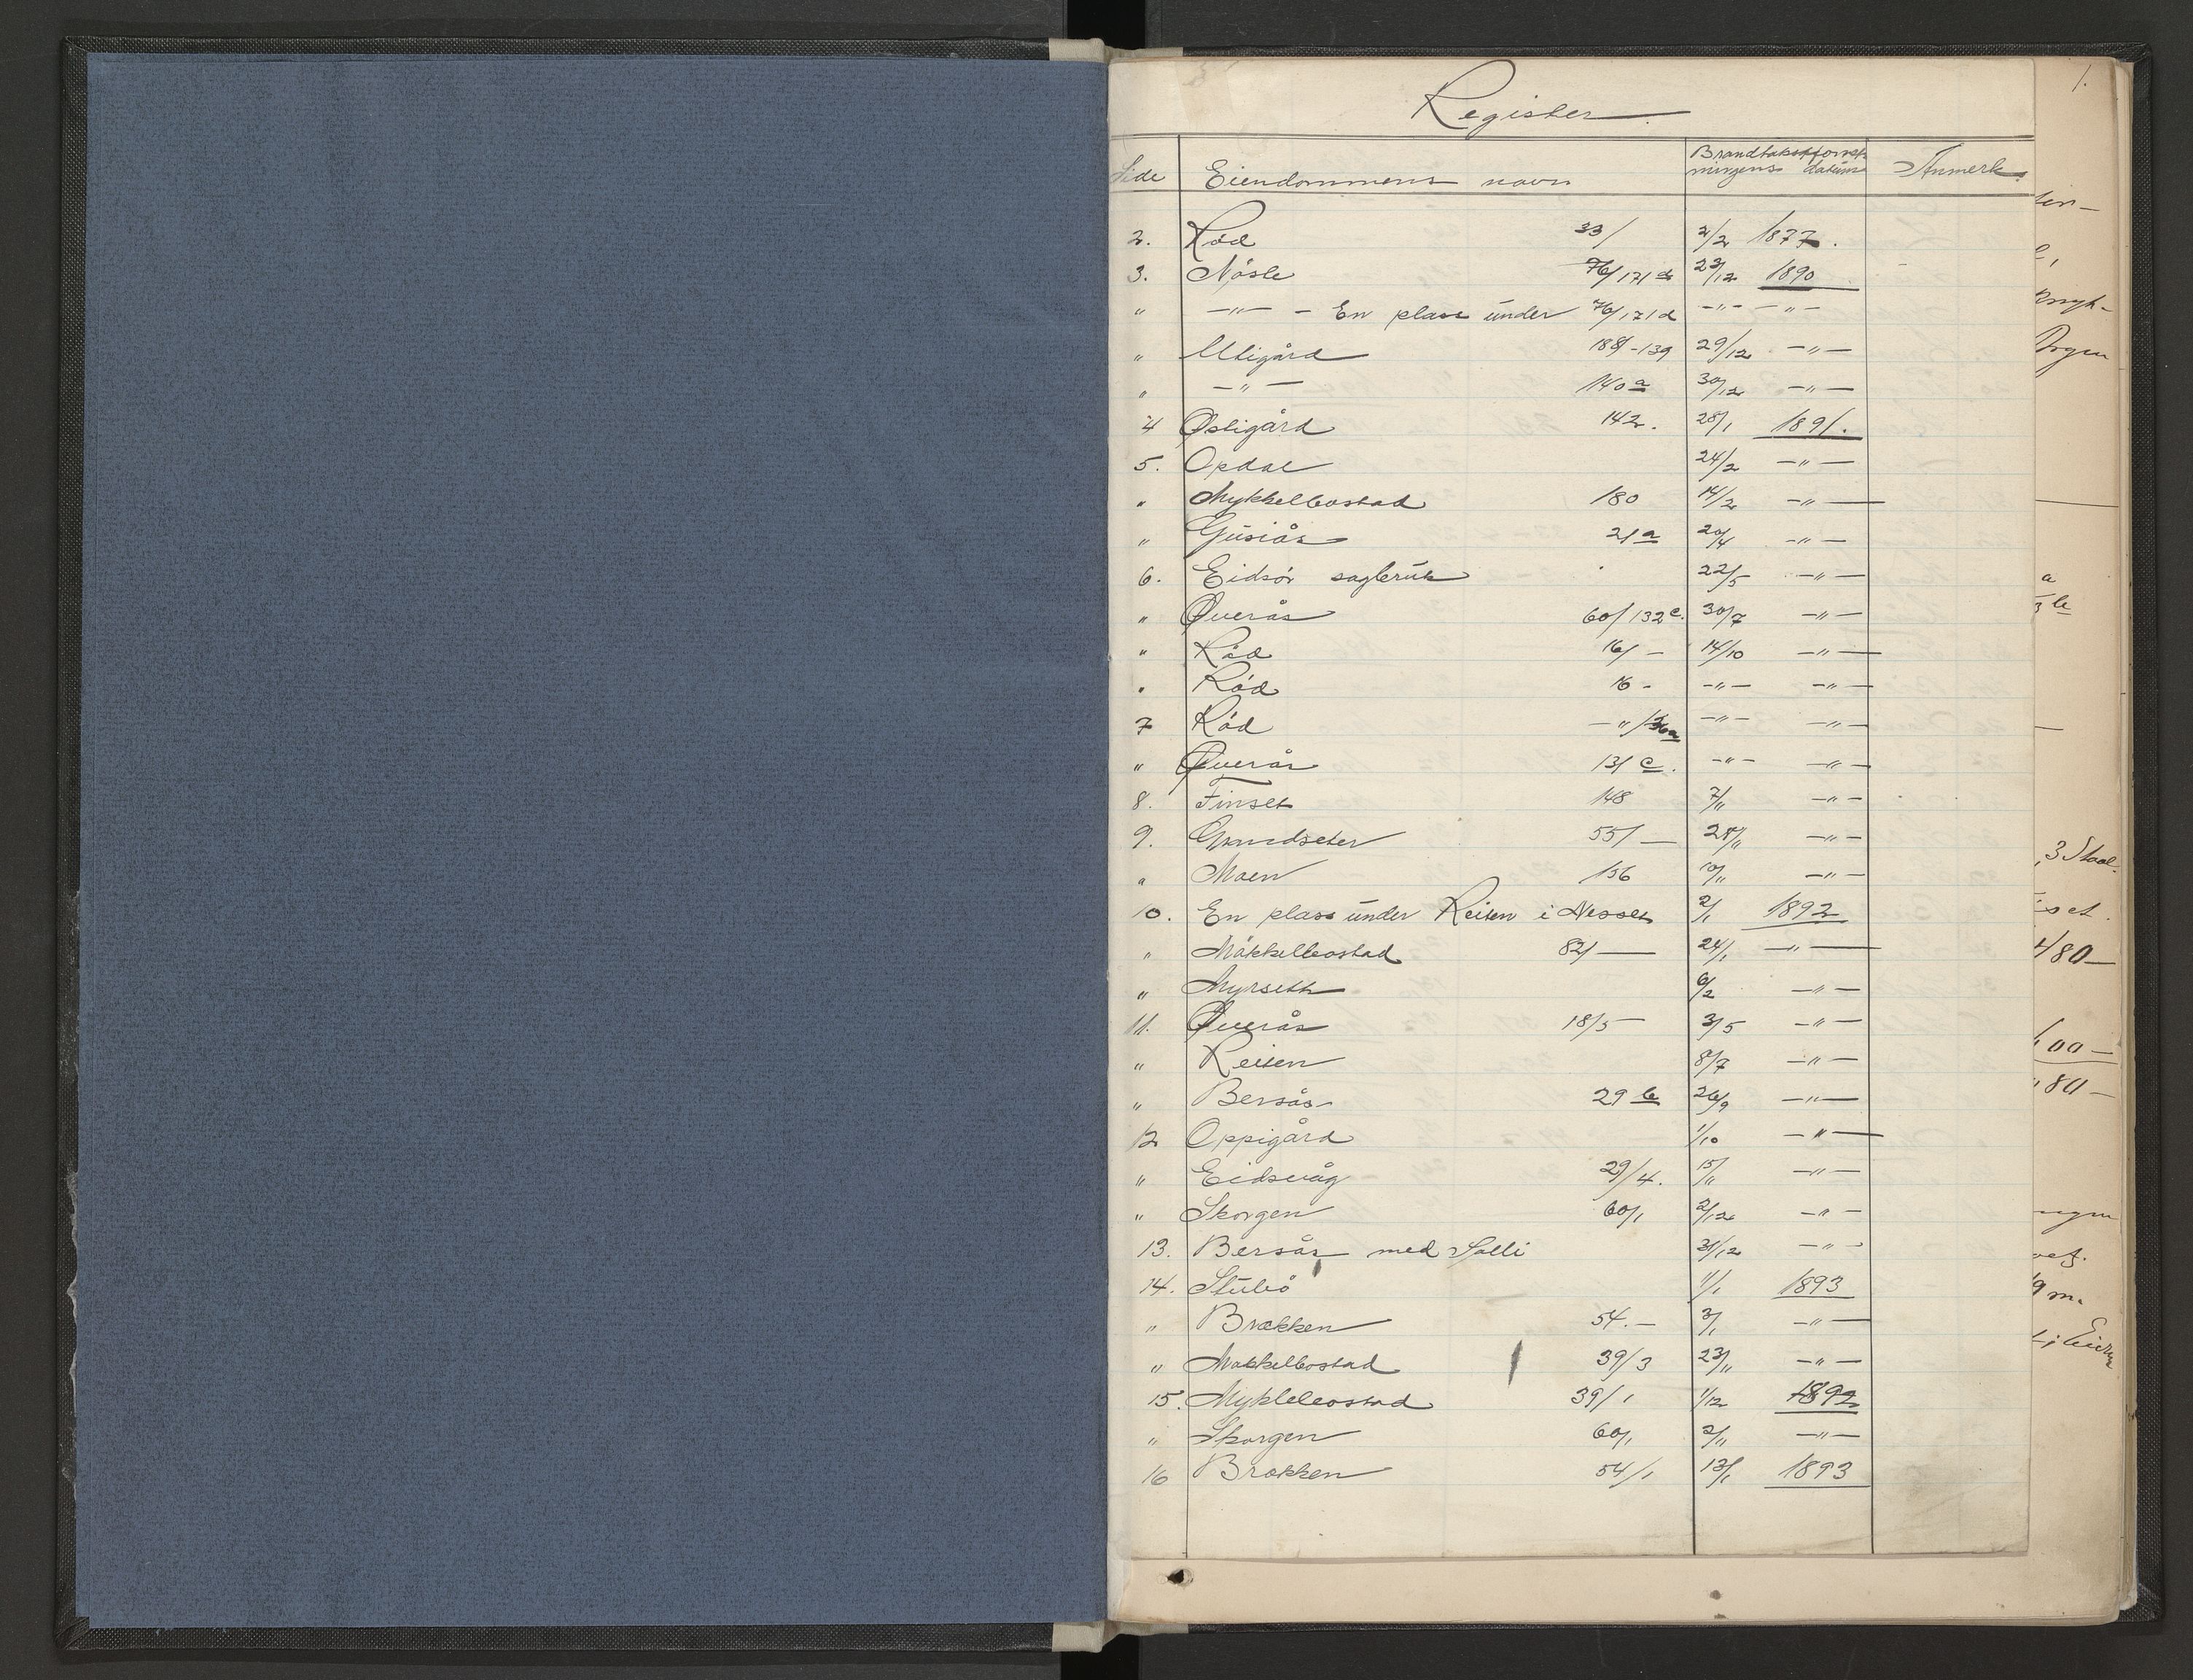 1.
Register
Side Eiendommens navn Brandtakstforret- Anmerk.
ningens datum
2. Röd 33/ 2/2 1877.
3. Nöste 76/171 d 23/12 1890
" —"— - En plass under 76/171d -"- -"-
" Utigård 189-139 29/12 —"—
" —"— 140a 30/12 —"—
4 Östigård 142. 28/1 1891.
5. Opdal 24/2 —"—
" Mykkelbostad 180 14/2 —"—
" Gusiås 21a 20/4 —"—
6. Eidsör sagbruk 22/5 —"—
" Øverås 60/132c. 30/7 —"—
" Röd 16/ - 14/10 —"—
" Röd 16 - —"— —"—
7 Röd —"/ —"— —"—
" Øverås 131 c. —"— —"—
8. Finset 148 7/11 —"—
9. Grandseter 55/ — 28/11 —"—
" Moen 156 10/11 —"—
10. En plass under Reiten i Nesset 2/1 1892
" Mökkelbostad 82/ — 24/1 —"—
" Myrseth 6/2 —"—
11. Øverås 18/5 3/5 —"—
" Reiten 8/7 —"—
" Bersås 29 b 26/9 —"—
12 Oppigård 1/10 —"—
" Eidsvåg 29/4. 15/11 —"—
" Skorgen 60/1 2/12 —"—
13. Bersås med Salli 31/12 —"—
14. Stubö 1/1 1893
" Brækken 54.— 3/1 —"—
" Mökkelbostad 39/3 23/11 —"—
15. Myklebostad 39/1 1/12 1892
" Skorgen 60/1 2/11 —"—
16 Brækken 54/1 13/1 1893
3 Staal-
480—
600—
80—